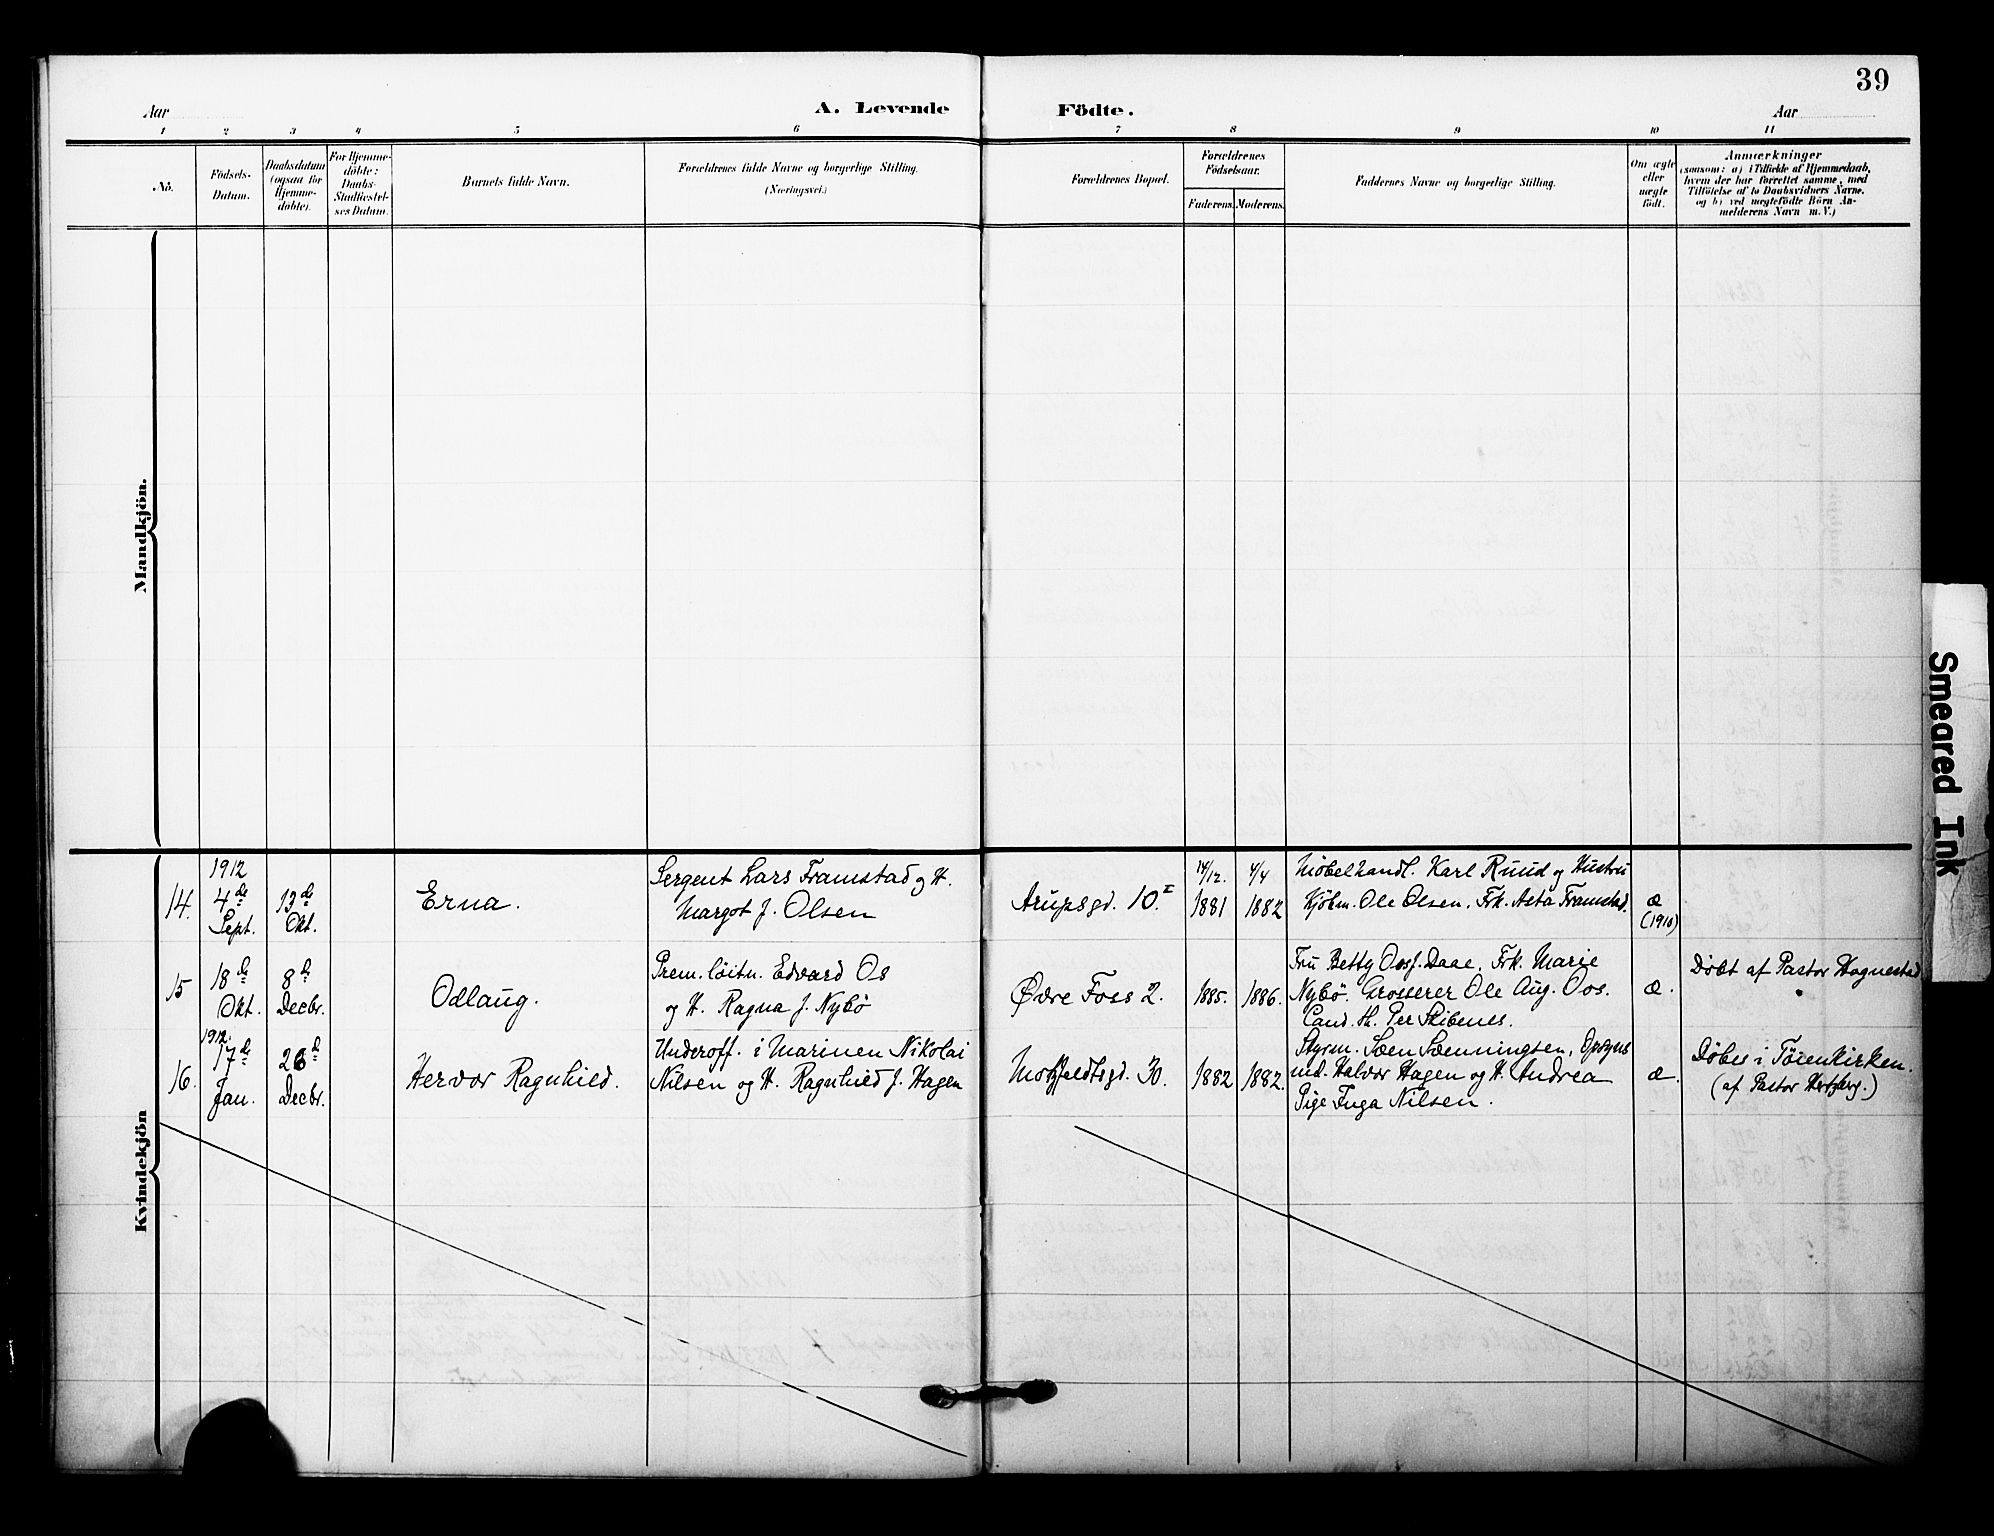 39
Aar
A. Levende
Födte.
Aar
1 2 3 4 5 6 7 8 9 10 11
No.
Födsels-
Datum.
Daabsdatum
(ogsaa for
Hjemme-
döbte).
For Hjemme-
döbte:
Daabs-
Stadfæstel-
ses Datum.
Barnets fulde Navn.
Forældrenes fulde Navne og borgerlige Stilling.
(Næringsvei.)
Forældrenes Bopæl.
Forældrenes
Födselsaar.
Faderens.
Moderens.
Faddernes Navne og borgerlige Stilling.
Om ægte
eller
uægte
født.
Anmærkninger
(saasom: a) i Tilfælde af Hjemmedaab,
hvem der har forrettet samme, med
Tilföielse af to Daabsvidners Navne.
og b) ved uægtefödte Börn An-
melderens Navn m. V.)
Mandkjön.
Kvindekjön
14.
1912
4de
Sept.
13de
Okt.
Erna.
Sergent Lars Framstad og H.
Margot f. Olsen
Arupsgd. 10.I
14/12.
1881
4/4
1882
Møbelhandl. Karl Ruud og Hustru
Kjöbm. Ole Olsen, Frk. Asta Framstad.
æ
(1910)
15
18de
Okt.
8de
Decbr.
Odlaug.
Prem. löitn. Edvard Os
og H. Ragna f. Nybø
Øvre Foss 2.
1885.
1886.
Fru Betty Oos f. Daae, Frk. Marie
Nybö. Grosserer Ole Aug. Oos.
Cand. th. Per Skibenes.
æ.
Døbt af Pastor Hognestad
16.
1912
17de
Jan.
26d
Decbr.
Hervor Ragnhild.
Underoff. i Marinen Nikolai
Nilsen og H. Ragnhild f. Hagen
Motzfeldtsgd. 30.
1882
1882.
Styrm. Søen Sønningsen, Opsyns
md. Halvor Hagen og H. Andrea
Pige Inga Nilsen.
æ.
Døbt i Tøienkirken.
(af Pastor Hertzberg.)
Smeared Ink